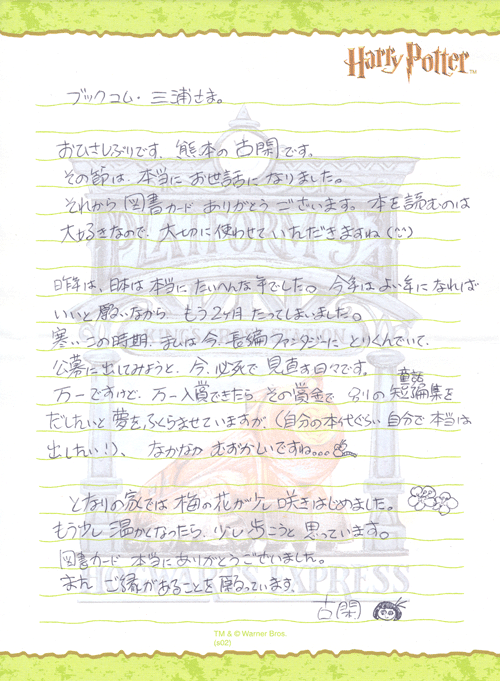 Harry Potter™
ブックコム・三浦さま。
おひさしぶりです。熊本の古閑です。
その節は、本当にお世話になりました。
それから図書カードありがとうございます。本を読むのは
大好きなので、大切に使わせていただきますね
昨年は、日本は本当にたいへんな年でした。今年はよい年になれば
いいと願いながら もう2ヶ月たってしまいました。
寒いこの時期、私は今、長編ファンタジーにとりくんでいて、
公募に出してみようと、今、必死で見直す日々です。
万一ですけど、万一入賞できたら、その賞金で の童話短編集を
だしたいと夢をふくらませていますが、(自分の本代ぐらい自分で本当は
出したい!)、なかなかむずかしいですね…
PLATFORM 9¾
KING'S CROSS STATION
となりの家では梅の花が少し咲きはじめました。
もう少し温かくなったら、少し歩こうと思っています。
図書カード本当にありがとうございました。
また、ご縁があることを願っています。
HOGWARTS EXPRESS
古閑
TM & © Warner Bros.
(s02)